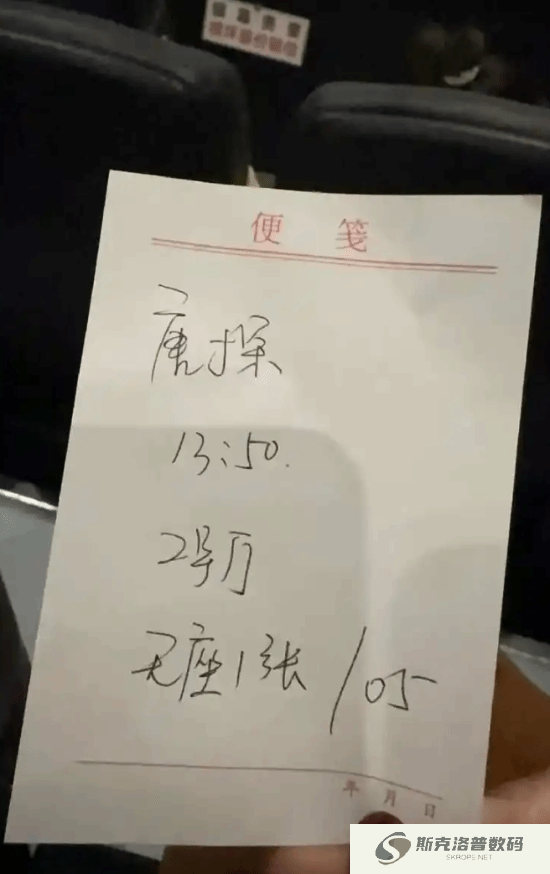 便 笺
唐探
13:50.
2号厅
无座1张/05
年 月 日
斯克洛普数码
SKROPE.NET